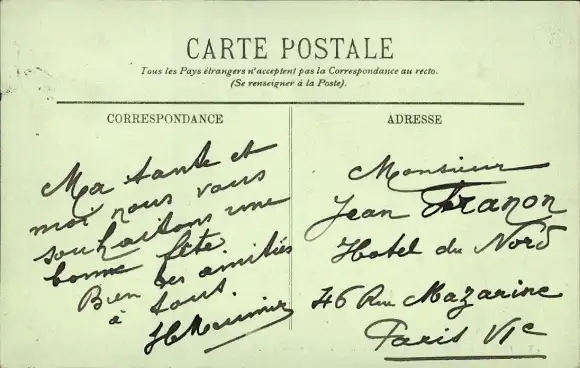 CARTE POSTALE
Tous les Pays étrangers n'acceptent pas la Correspondance au recto.
(Se renseigner à la Poste).
CORRESPONDANCE
Ma tante et
moi nous vous
souhaitons une
bonne fête.
Bien des amitiés
à tous.
ADRESSE
Monsieur
Jean Franon
Hotel du Nord
46 Rue Mazarine
Paris VIe